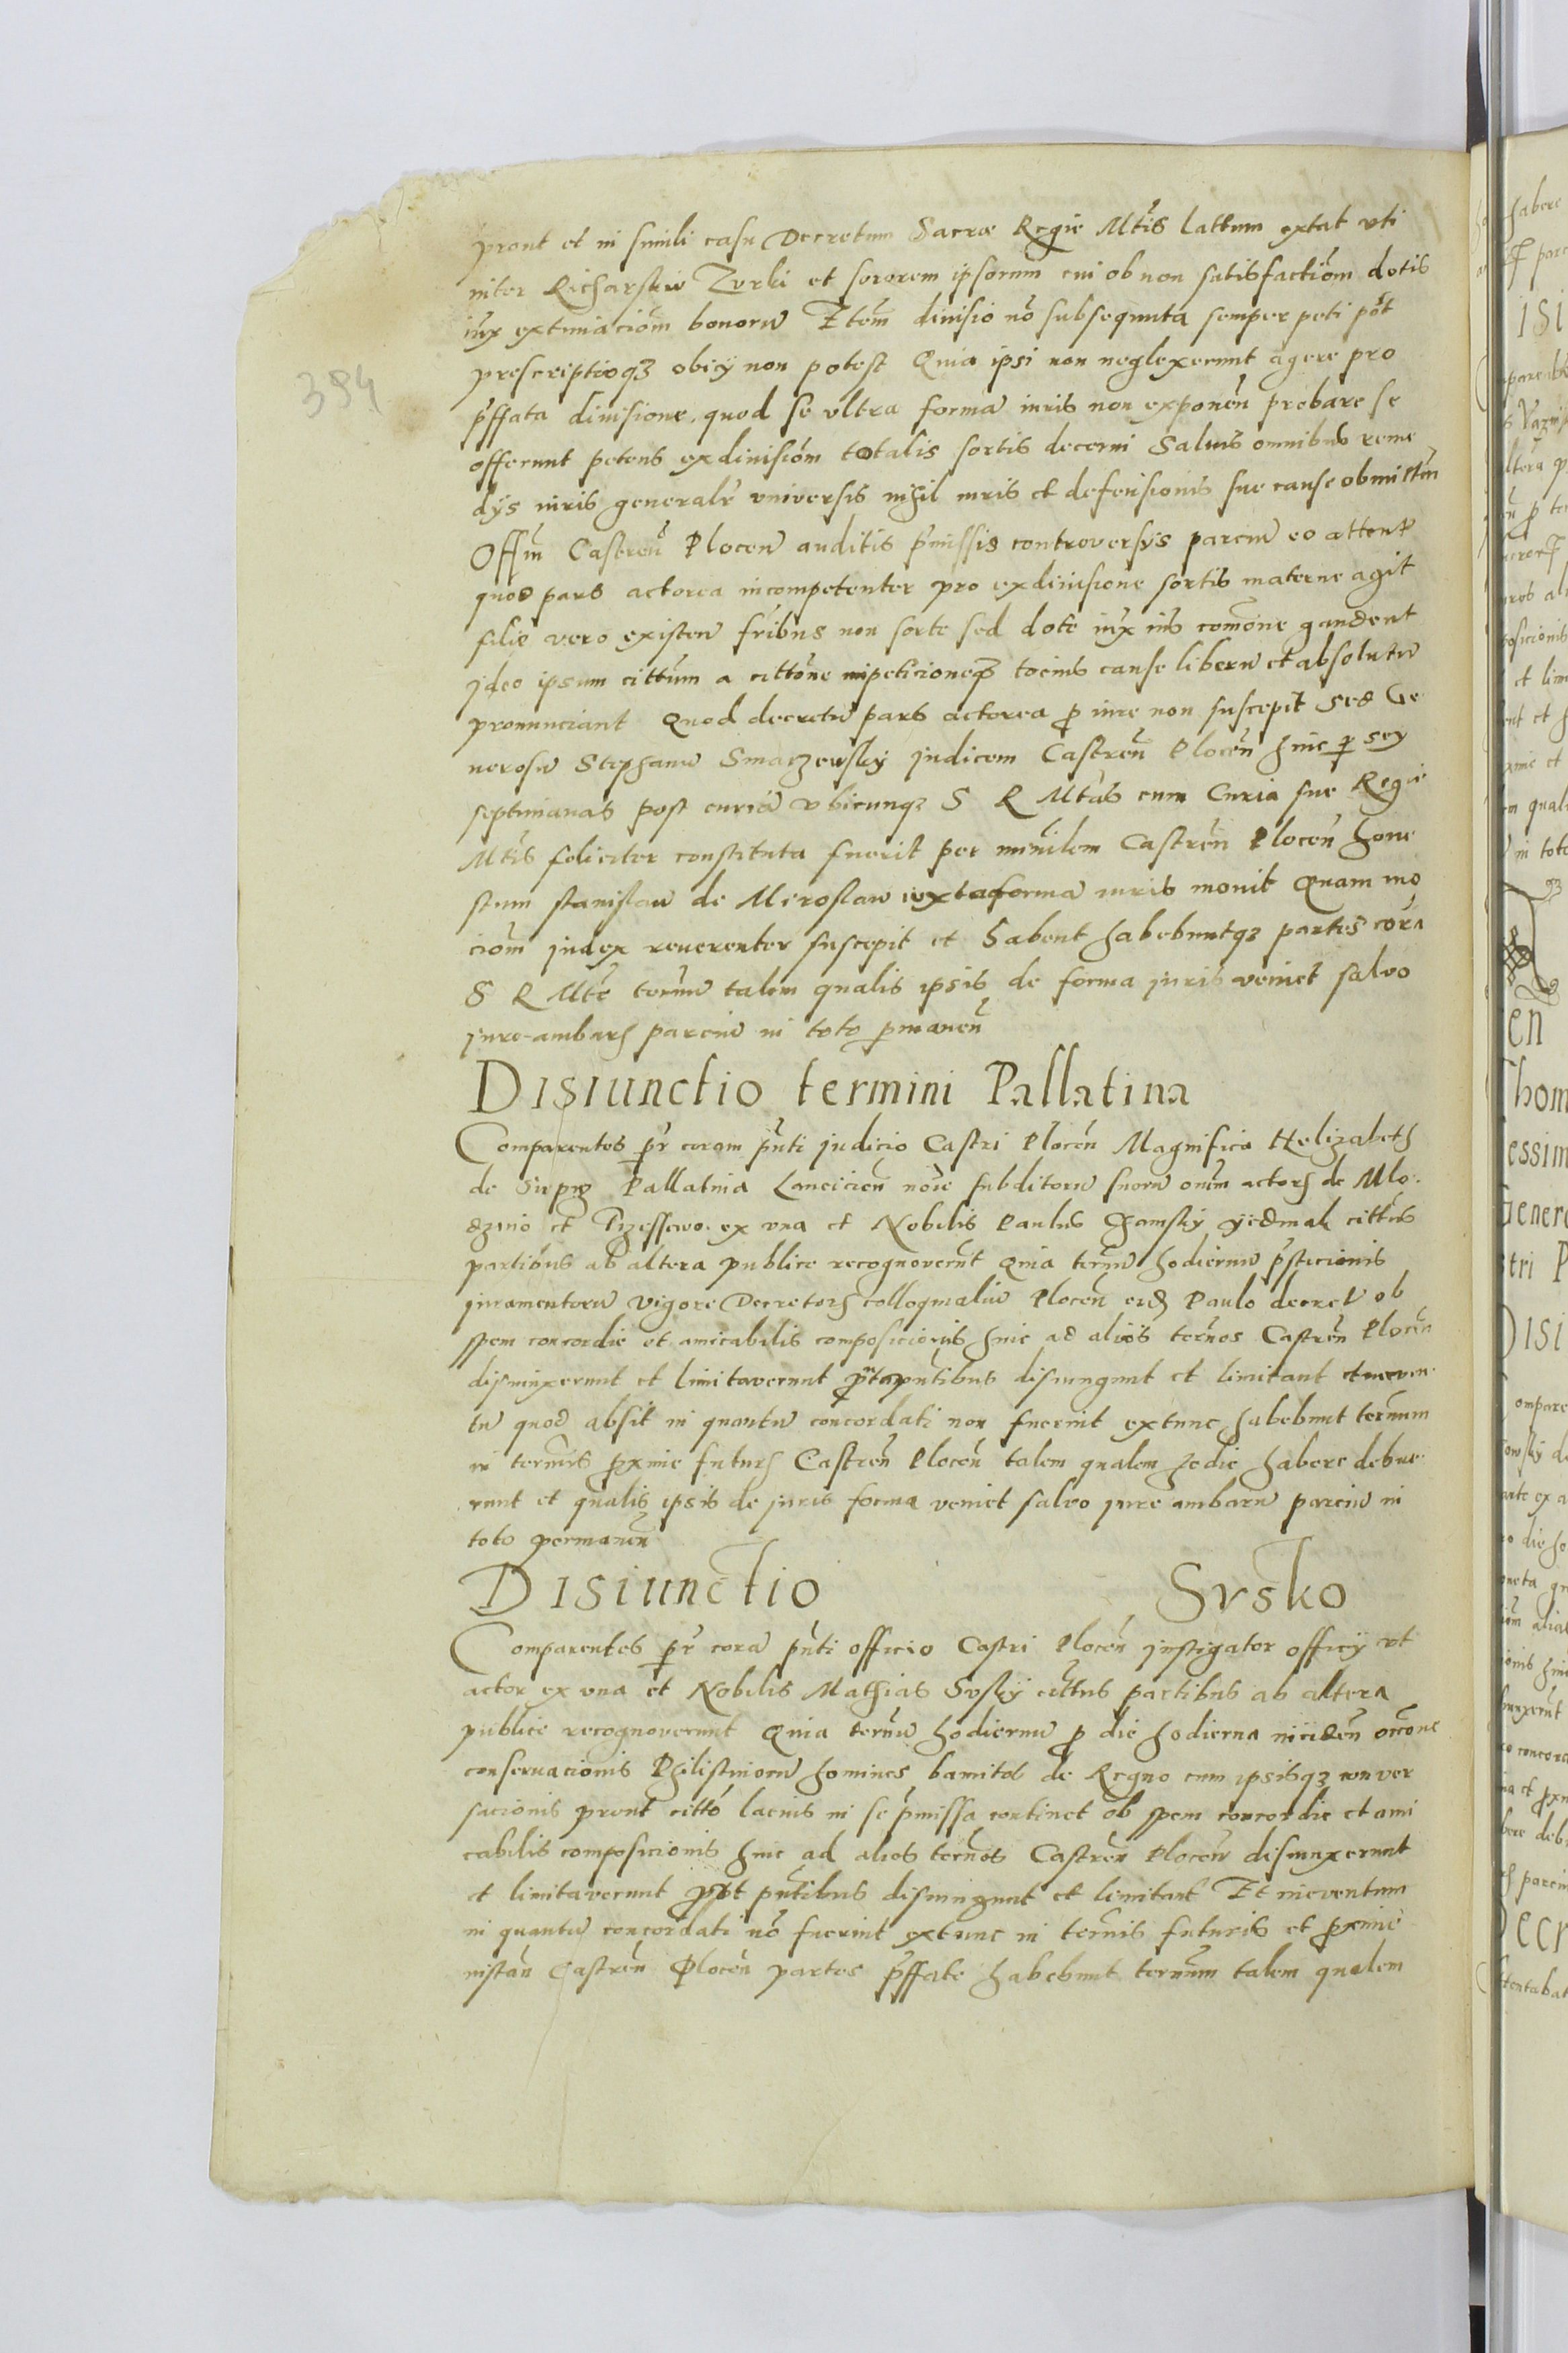 prout et in simili casu Decretum Sacræ Regie Mtis lattum extat uti
inter Richarskie Turki et sororem ipsorum cui ob non satisfactiom dotis
iux extimaciom bonoru Item divisio no subsequuta semper peti pot
prescriptioqz obicy non potest Quia ipsi non neglexerunt agere pro
pffata divisione. quod se ultra forma iuris non exponen probare se
offerunt petens exdivisiom totalis sortis decerni Salvis omnibus reme
dys iuris generalr universis nihil iuris et defensionis sue cause obmitten
Offm Castren Plocen auditis pmissis controversys parciu eo attento
quod pars actorea incompetenter pro exdivisione sortis materne agit
filie vero existen fribus non sorte sed dote iux ius comone gaudent
ideo ipsum cittum a cittone impeticioneqz tocius cause liberu et absolutu
pronunciant Quod decretu pars actorea p iure non suscepit Sed Ge
nerosu Stephanu Smarzewsky judicem Castren Plocen hinc p sex
septimanas post curia ubicunqz S R Mtas cum Curia sue Regie
Mtis feliciter constituta fuerit per minilem Castren Plocen hone
stum stanislau de Miroslaw iuxta forma iuris monit Quam mo
ciom judex reverenter suscepit et Habent habebuntqz partes cora
S R Mte termu talem qualis ipsis de forma juris veniet salvo
jure ambarz parciu in toto pmanen
Disiunctio termini Pallatina
Comparentes pr coram pnti judicio Castri Plocen Magnifica Helizabeth
de Sirpcz Pallatina Lanciecien noie subditoru suoru onm actorz de Mlo
dzino et Przessewo ex una et Nobilis Paulus Chamsky Jedmak cittus
partibus ab altera publice recognoverunt Quia termu hodiernu psticionis
juramentoru vigore Decretorz colloquialiu Plocen eidz Paulo decret ob
spem concordie et amicabilis composicionis hinc ad alios termos Castren Plocen
disiunxerunt et limitaverunt pntibus disiungunt et limitant et in even
tu quod absit in quantu concordati non fuerint extunc habebunt terminum
in terminis pxime futurz Castren Plocen talem qualem hodie habere debue
runt et qualis ipsis de juris forma veniet salvo jure ambaru parciu in
toto permanen
Disiunctio Susko
Comparentes pr cora pnti officio Castri Plocen instigator officy ut
actor ex una et Nobilis Mathias Susky cittus partibus ab altera
publice recognoverunt Quia termu hodiernu p die hodierna inciden occone
conservacionis Philistinoru homines banitos de Regno cum ipsisqz conver
sacionis prout citto lacius in se pmissa continet ob spem concordie et ami
cabilis composicionis hinc ad alios termos Castren Plocen disiunxerunt
et limitaverunt prout pntibus disiungunt et limitant Et in eventum
in quantu concordati no fuerint extunc in terminis futuris et pxime
instan Castren Plocen partes pffate habebunt terminum talem qualem
394